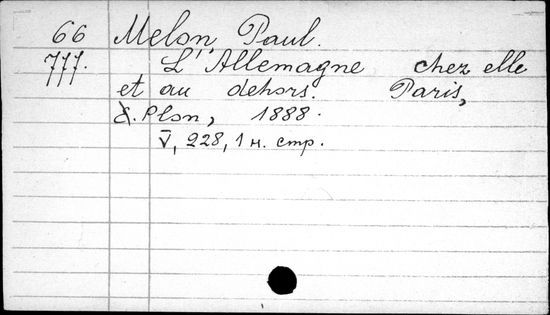 66 Melon, Paul.
777. L'Allemagne chez elle
et au dehors. Paris,
Plon, 1888.
V, 228, 1 н. стр.